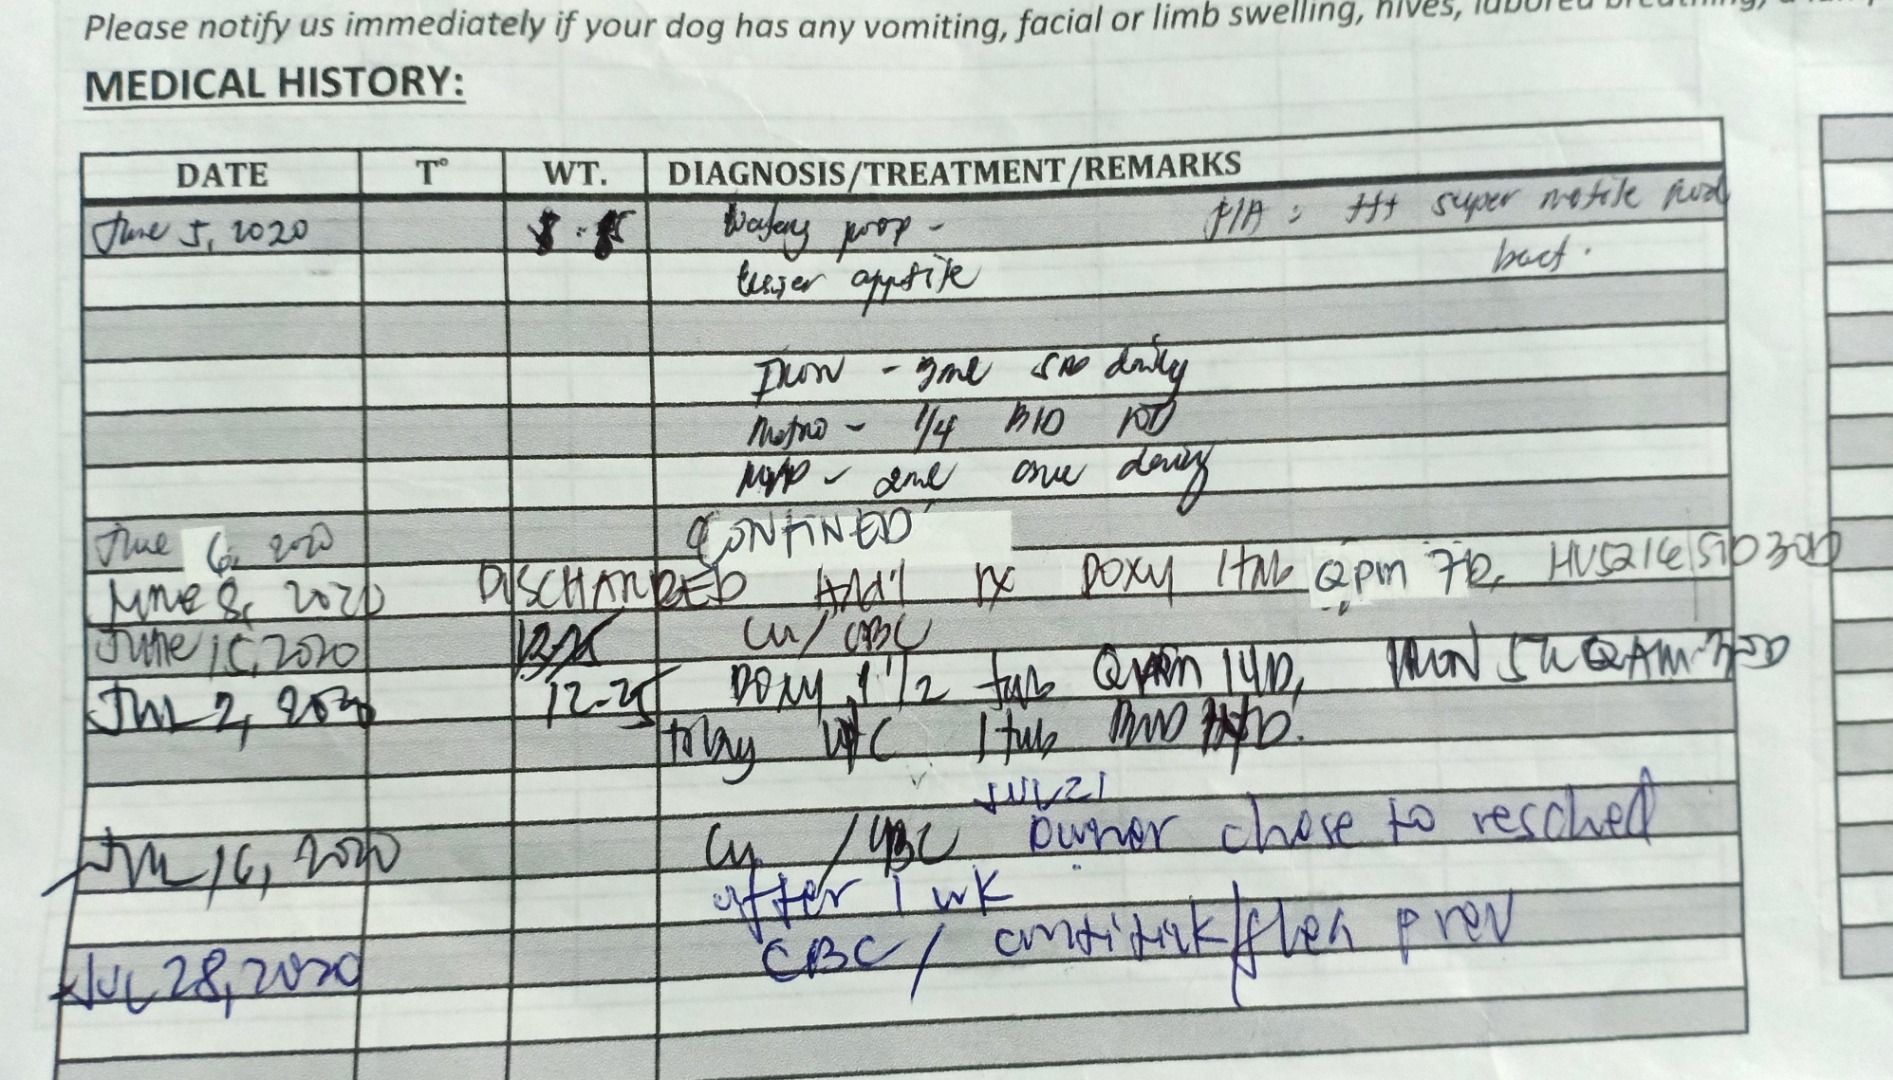 Please notify us immediately if your dog has any vomiting, facial or limb swelling, hives, labored breathing,
MEDICAL HISTORY:
DATE T° WT. DIAGNOSIS/TREATMENT/REMARKS
June 5, 2020 Watery poop - F/A: +++ super motile rod
lesser appetite bact.
Iron - 3ml SID daily
Metro - 1/4 BID
2ml once daily
June 6, 2020 CONFINED
June 8, 2020 DISCHARGED Add'l rx DOXY 1 tab QPM 7D,
June 15, 2020 12.25 CU/CBC
Jul 2, 2020 12.25 DOXY 1 1/2 tab QPM 14D, IRON QAM
1 tab
JUL 21
Jul 16, 2020 CU /CBC owner chose to resched
after 1 wk
JUL 28, 2020 CBC/ antitick/flea prev